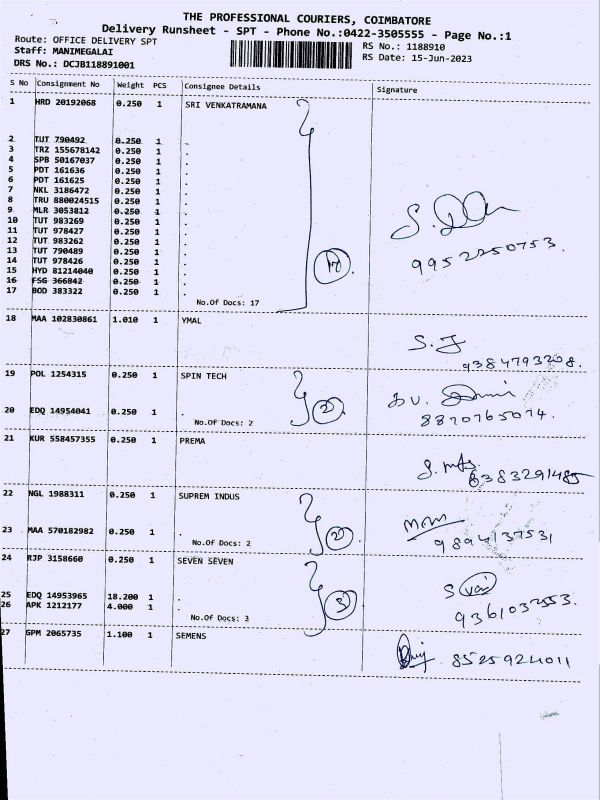 THE PROFESSIONAL COURIERS, COIMBATORE
Delivery Runsheet - SPT - Phone No.:0422-3505555 - Page No.:1
Route: OFFICE DELIVERY SPT
RS No.: 1188910
Staff: MANIMEGALAI
RS Date: 15-Jun-2023
DRS No.: DCJB118891001
S No Consignment No Weight PCS Consignee Details Signature
1 HRD 20192068 0.250 1 SRI VENKATRAMANA
2 TUT 790492 0.250 1 .
3 TRZ 155678142 0.250 1 .
4 SPB 50167037 0.250 1 .
5 PDT 161636 0.250 1 .
6 PDT 161625 0.250 1 .
7 NKL 3186472 0.250 1 .
8 TRU 880024515 0.250 1 .
9 MLR 3053812 0.250 1 .
10 TUT 983269 0.250 1 .
11 TUT 978427 0.250 1 .
12 TUT 983262 0.250 1 .
13 TUT 790489 0.250 1 .
14 TUT 978426 0.250 1 .
15 HYD 81214040 0.250 1 .
16 FSG 366842 0.250 1 .
17 BOD 383322 0.250 1 .
17
9952250753.
No.Of Docs: 17
18 MAA 102830861 1.010 1 YMAL
S. J
9384793208.
19 POL 1254315 0.250 1 SPIN TECH
20 EDQ 14954041 0.250 1 .
2
8870765074.
No.Of Docs: 2
21 KUR 558457355 0.250 1 PREMA
6383291485
22 NGL 1988311 0.250 1 SUPREM INDUS
23 MAA 570182982 0.250 1 .
2
9894137531
No.Of Docs: 2
24 RJP 3158660 0.250 1 SEVEN SEVEN
25 EDQ 14953965 18.200 1 .
26 APK 1212177 4.000 1 .
3
9361032553.
No.Of Docs: 3
27 GPM 2065735 1.100 1 SEMENS
8525924011